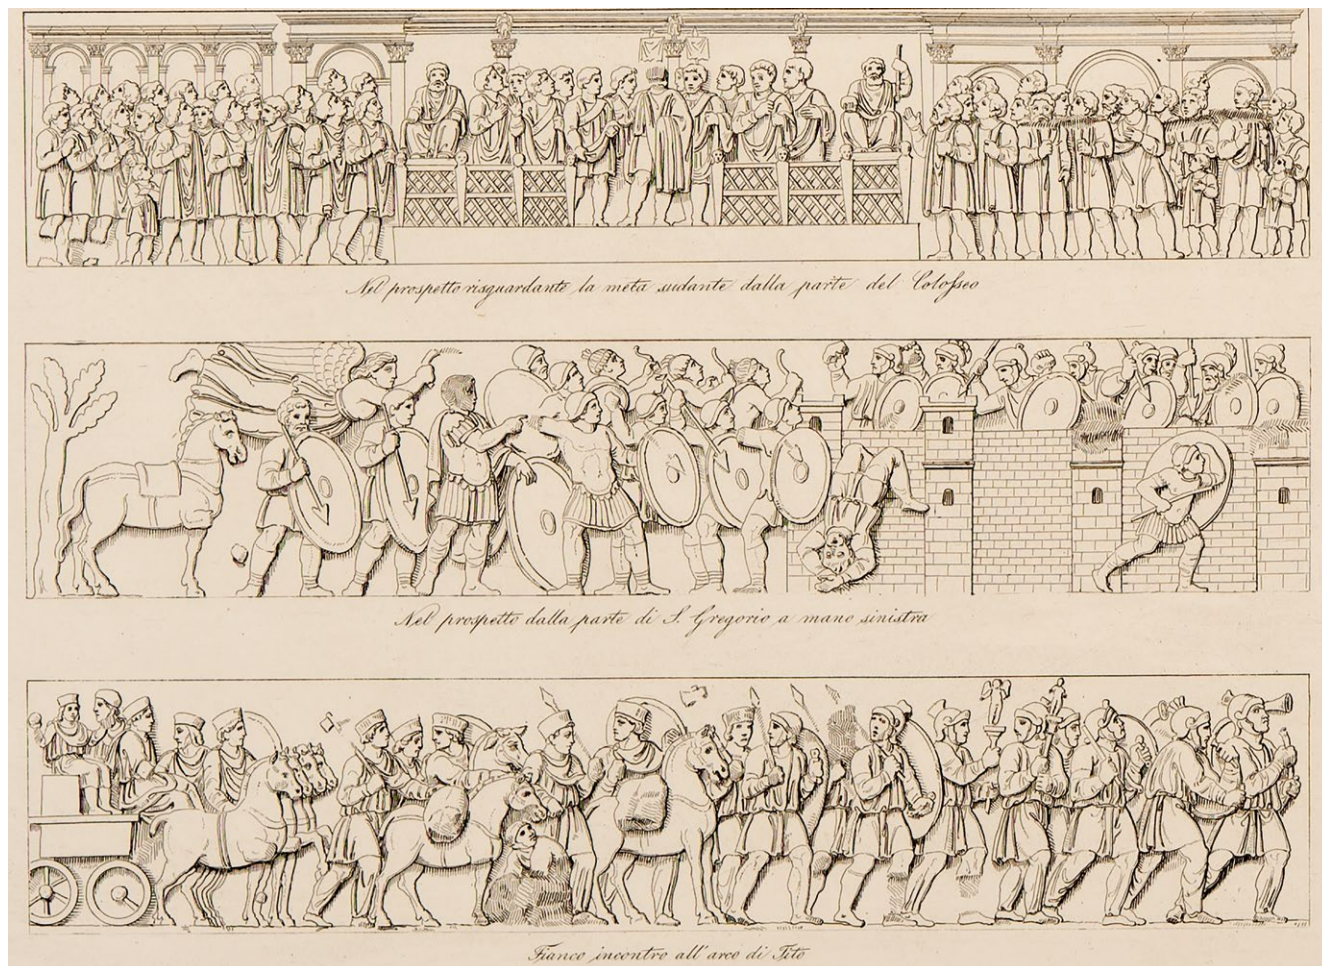 Nel prospetto risguardante la meta sudante dalla parte del Colosseo
Nel prospetto dalla parte di S. Gregorio a mano sinistra
Fianco incontro all' arco di Tito